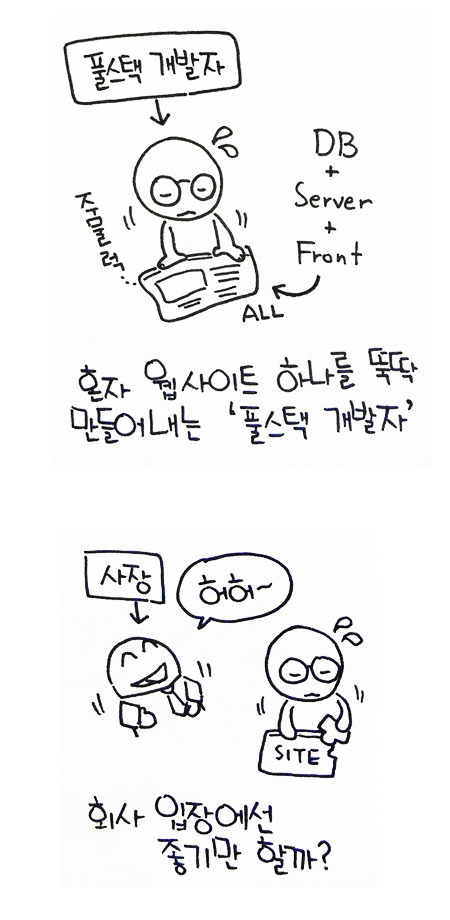 풀스택 개발자
DB
+
Server
+
Front
주물럭...
ALL
혼자 웹사이트 하나를 뚝딱
만들어내는 '풀스택 개발자'
사장
허허~
SITE
회사 입장에선
좋기만 할까?